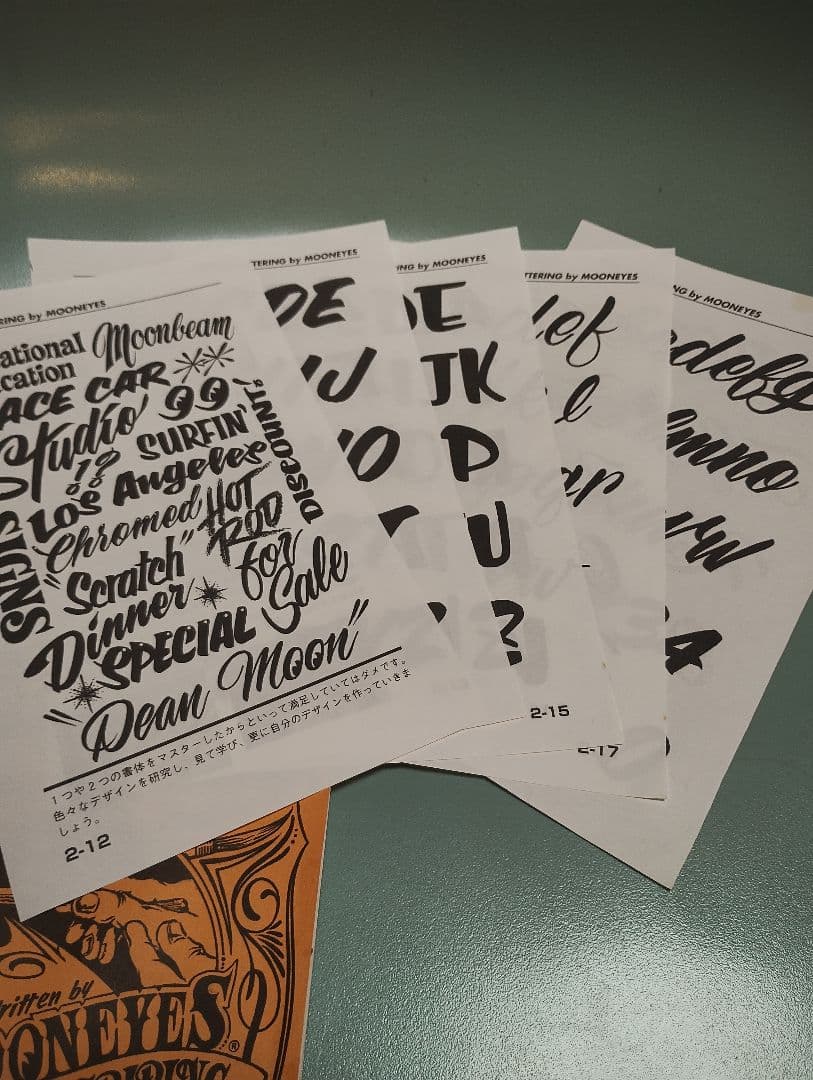 RING by MOONEYES
ational Moonbeam
cation
ACE CAR
Studio 99
!? SURFIN'
DISCOUNT!
Los Angeles
SIGNS
"Chromed" HOT ROD
"Scratch" for
Dinner Sale
SPECIAL
"Dean Moon"
1つや2つの書体をマスターしたからといって満足していてはダメです。
色々なデザインを研究し、見て学び、更に自分のデザインを作っていきま
しょう。
2-12
TERING by MOONEYES
DE
IJ
O
ING by MOONEYES
E
JK
P
U
?
2-15
TERING by MOONEYES
ef
l
qr
-17
NG by MOONEYES
defg
mno
vw
written by
OONEYES®